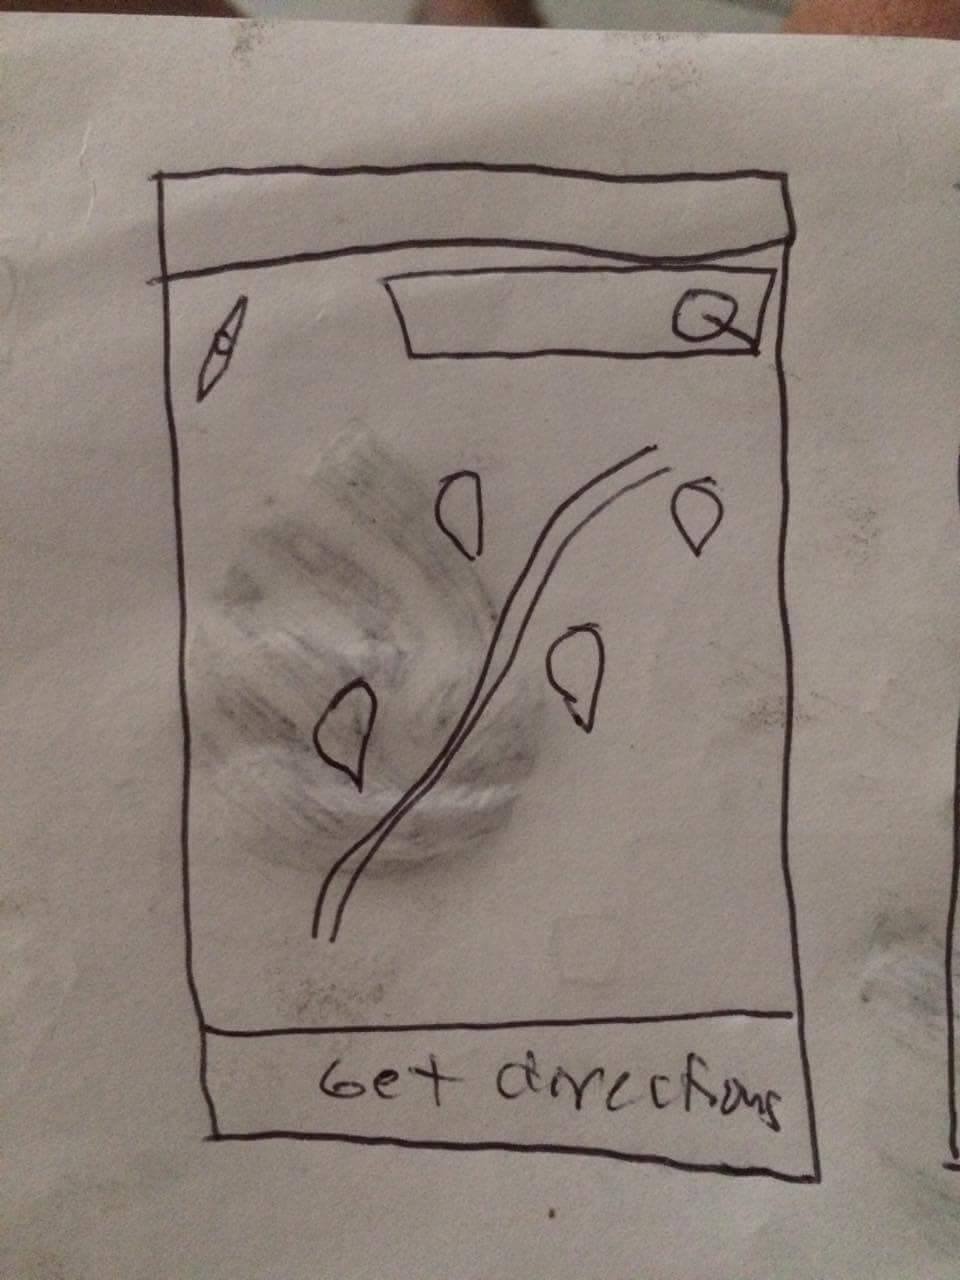 Get directions